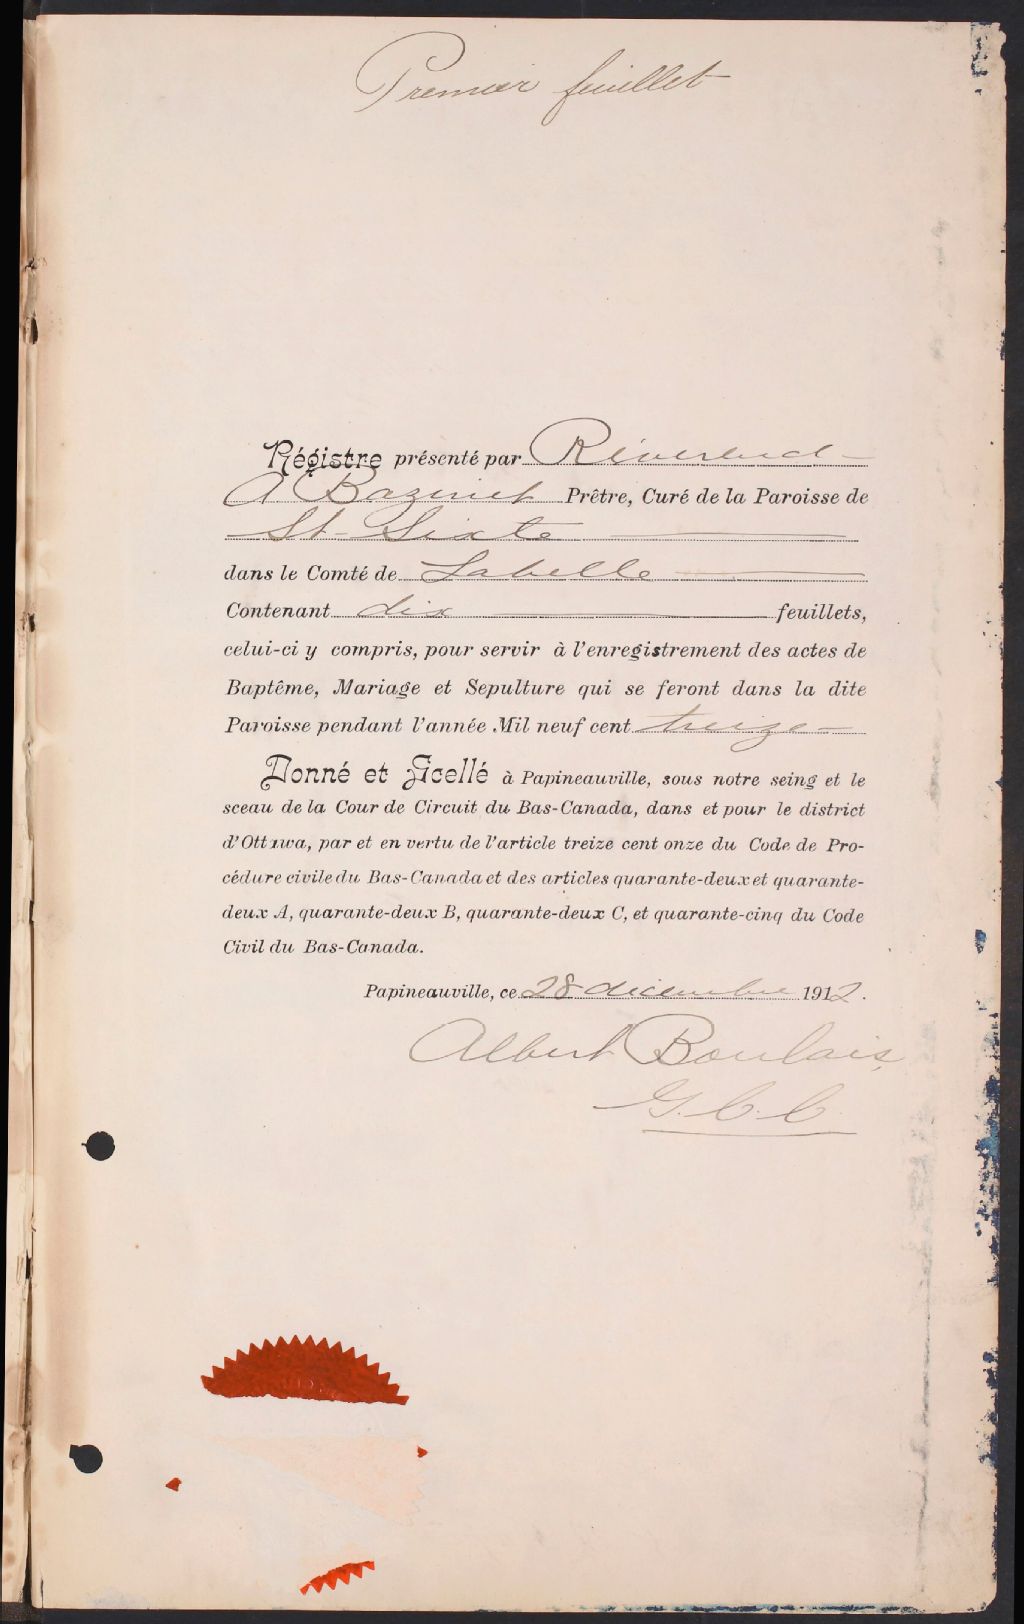 Premier feuillet
Régistre présenté par Réverend
A Bazinet Prêtre, Curé de la Paroisse de
St Sixte
dans le Comté de Labelle
Contenant dix feuillets,
celui-ci y compris, pour servir à l'enregistrement des actes de
Baptême, Mariage et Sepulture qui se feront dans la dite
Paroisse pendant l'année Mil neuf cent treize
Donné et Scellé à Papineauville, sous notre seing et le
sceau de la Cour de Circuit du Bas-Canada, dans et pour le district
d'Ottawa, par et en vertu de l'article treize cent onze du Code de Pro-
cédure civile du Bas-Canada et des articles quarante-deux et quarante-
deux A, quarante-deux B, quarante-deux C, et quarante-cinq du Code
Civil du Bas-Canada.
Papineauville, ce 28 décembre 1912.
Albert Boulais,
G.C.C.